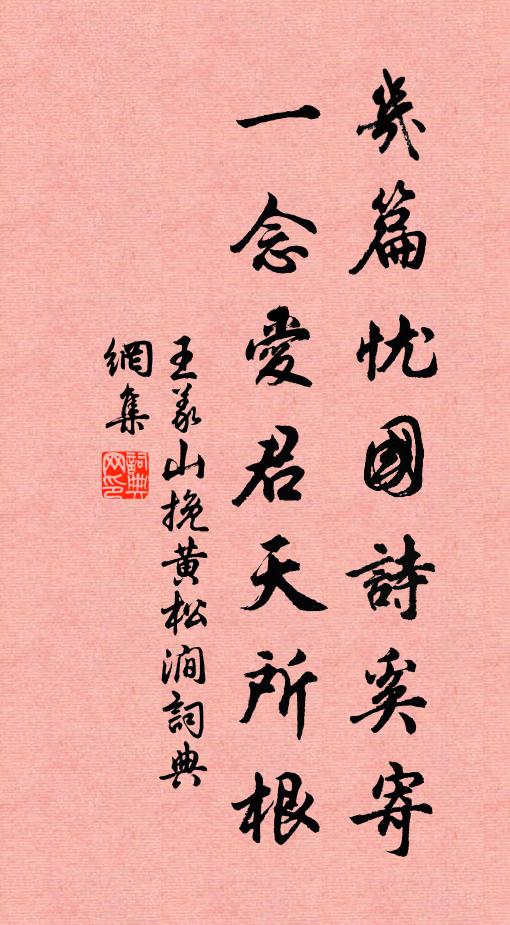 幾篇忧國詩奚寄
一念愛君天所根
王義山挽黄松澗詞典
網集
詞典
网印